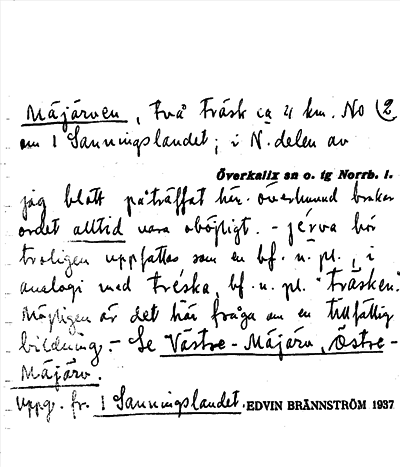 Mäjärven, två träsk ca 4 km. NO (2
om 1 Sanningslandet; i N. delen av
Överkalix sn o. tg Norrb. l.
jag blott påträffat här. överhuvud brukar
ordet alltid vara oböjligt. - jérva bör
troligen uppfattas som en bf. n. pl., i
analogi med tréska, bf. n. pl. "träsken".
Möjligen är det här fråga om en tillfällig
bildning. - Se Västre-Mäjärv, Östre-
Mäjärv.
Uppg. fr. 1 Sanningslandet. EDVIN BRÄNNSTRÖM 1937